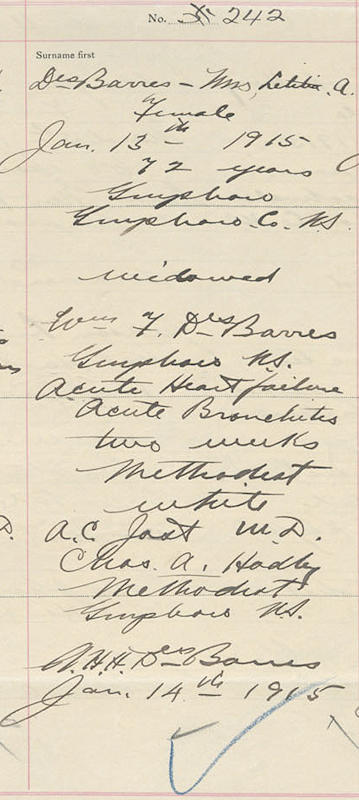 No. 242
Surname first
DesBarres - Mrs. Letitia. A.
Female
Jan. 13th 1915
72 years
Guysboro
Guysboro Co. N.S.
widowed
Wm F. DesBarres
Guysboro N.S.
Acute Heart failure
Acute Bronchitis
two weeks
Methodist
white
A.C. Jost M.D.
Chas. A. Hadley
Methodist
Guysboro N.S.
W.H.H. DesBarres
Jan. 14th 1915